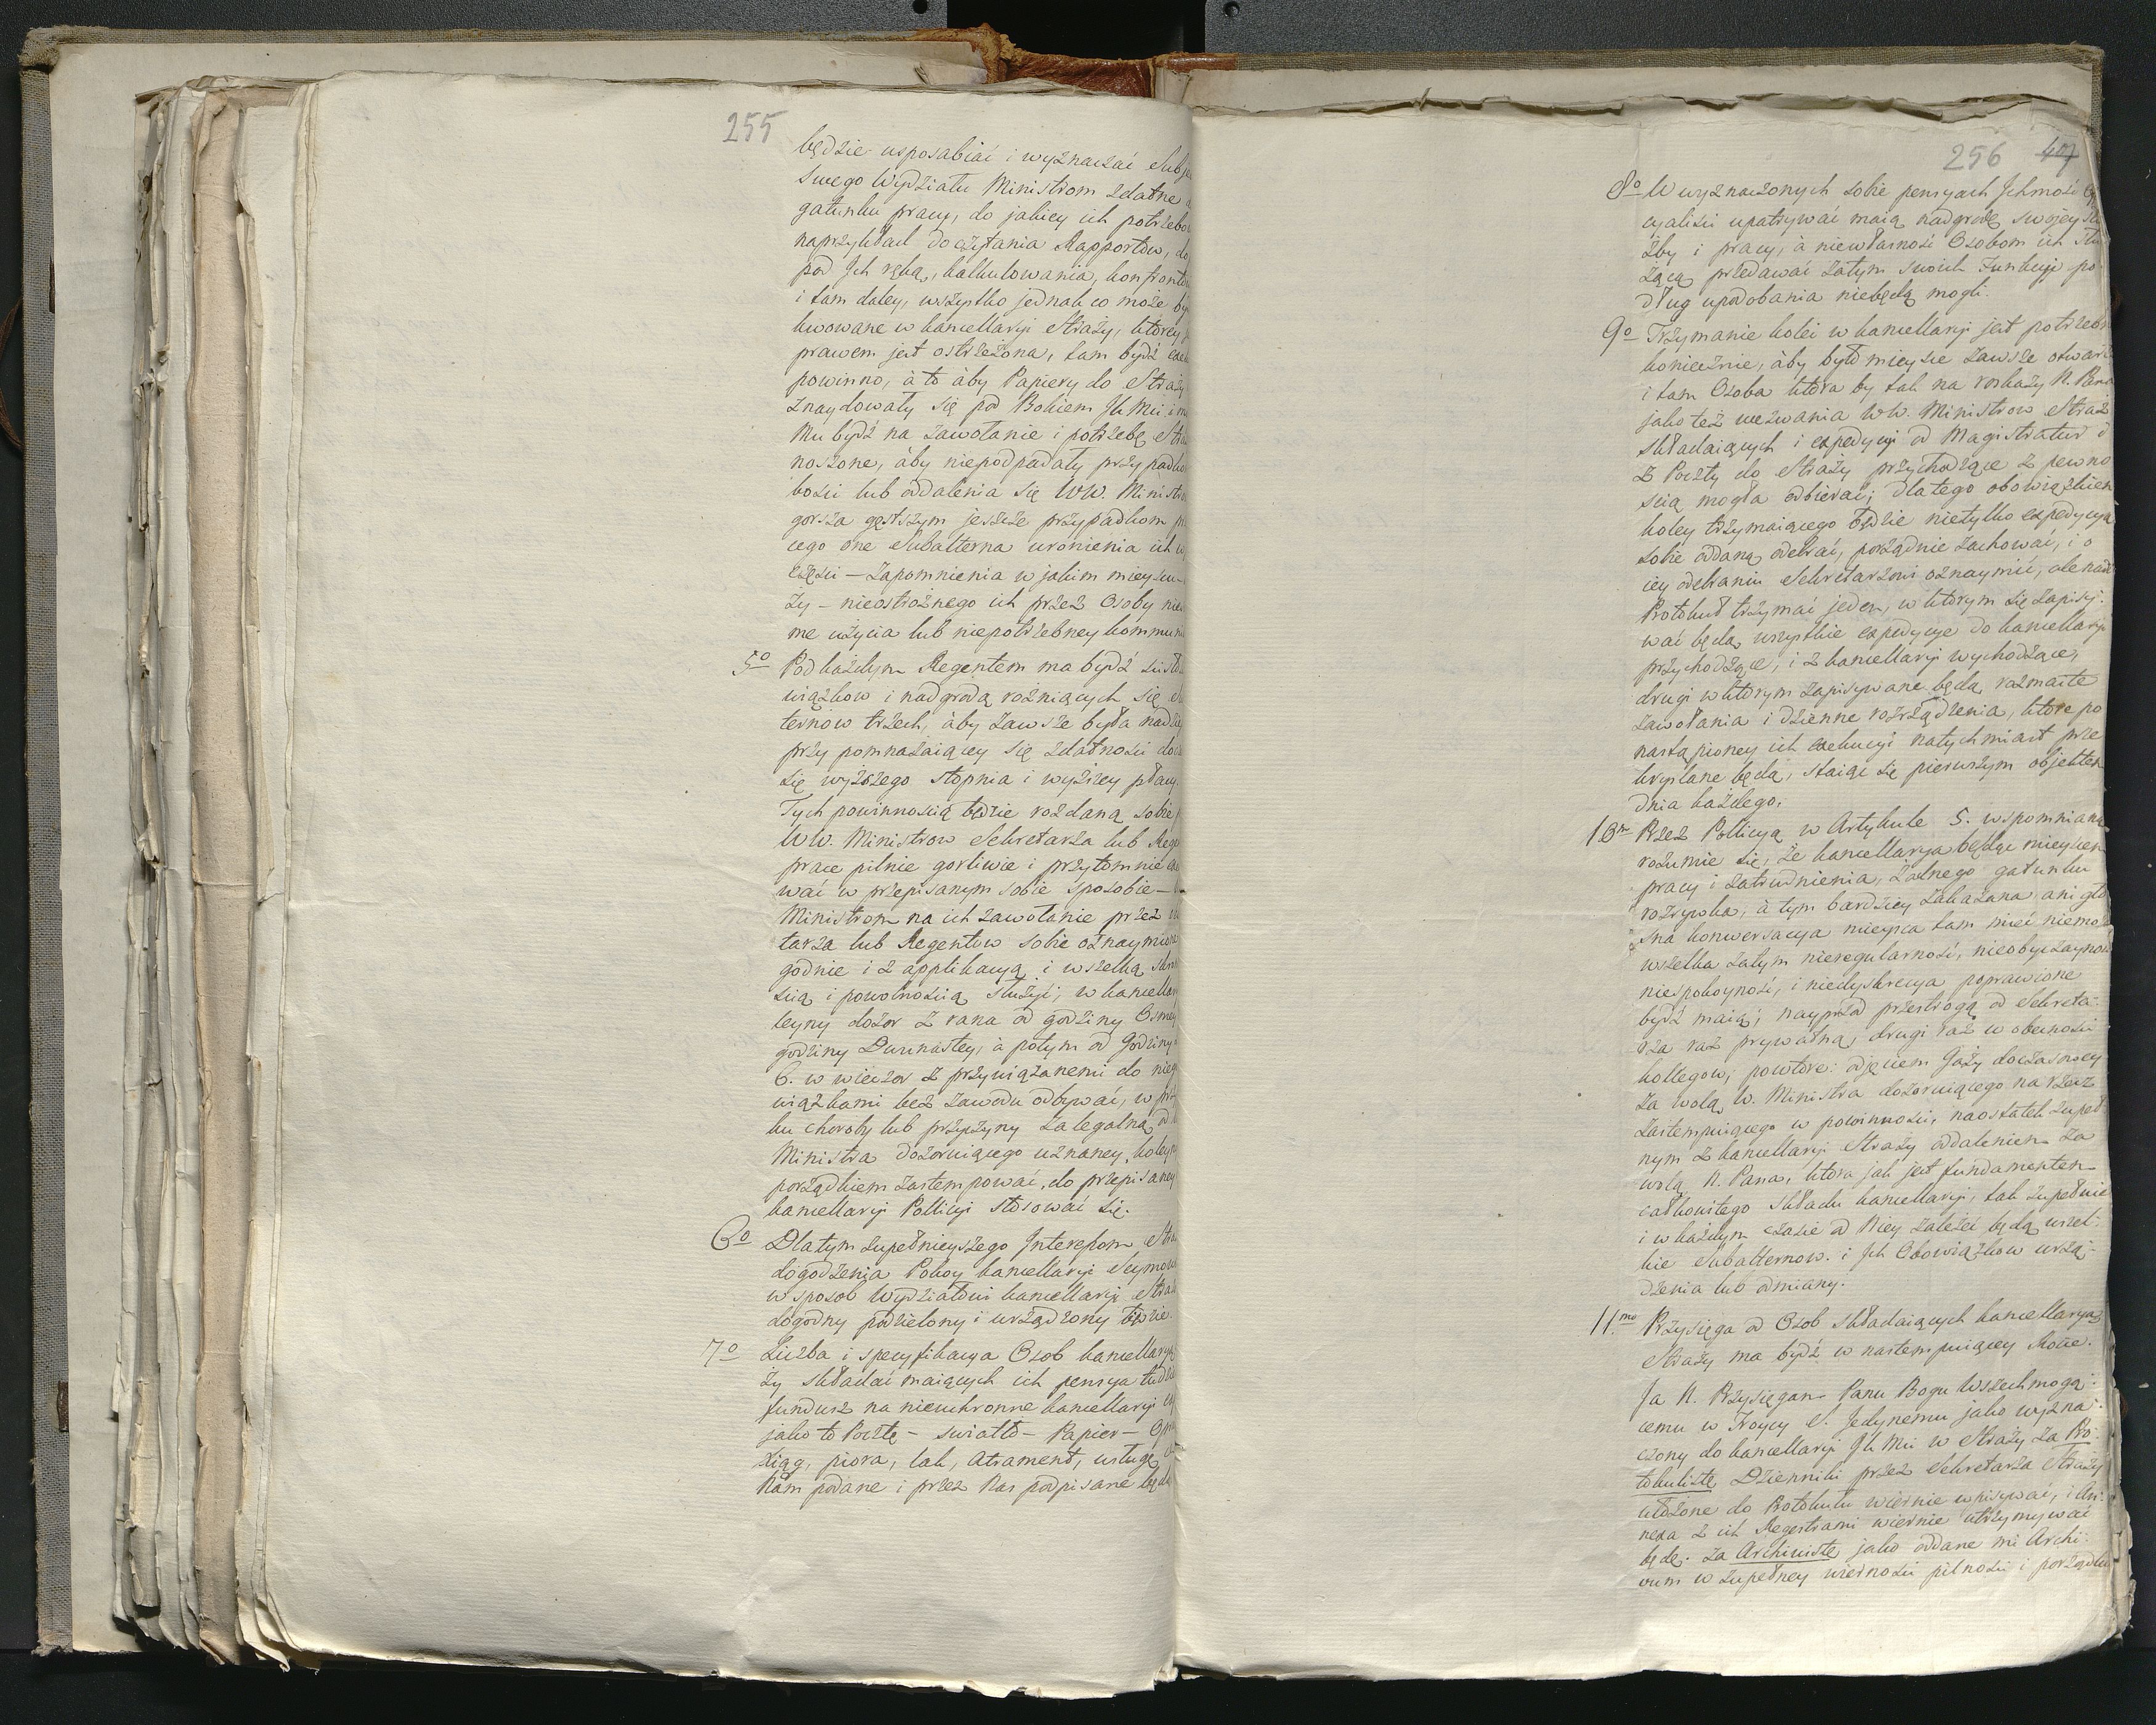 255
będzie usposabiać i wyznaczać Subje
Swego Wydziału Ministrom zdatne
gatunku pracy, do jakiey ich potrzebo
naprzykład do czytania Rapportow, do
pod Ich ręką, kalkulowania, konfronto
i tam daley, wszystko jednak co może by
kwowane w kancellaryi Straży, ktorey
prawem jest ostrzeżona, tam bydź
powinno, à to àby Papiery do Straży
znaydowały się pod Bokiem JK Mci i
Mu bydź na zawołanie i potrzebę Stra
noszone, àby niepodpadały przypadko
bosci lub oddalenia się WW. Ministro
gorsza gęstszym jeszcze przypadkom
cego one Subalterna uronienia ich w
części – zapomnienia w jakim mieyscu –
ży – nieostrożnego ich przez Osoby nie
me użycia lub niepotrzebney kommuni
5o Pod każdym Regentem ma bydź
wiązkow i nadgrodą rożniących się
ternow trzech, àby zawsze była nad
przy pomnażaiącey się zdatności
się wyższego stopnia i wyższey płacy.
Tych powinnoscią będzie rozdaną sobie
WW. Ministrow Sekretarza lub Rege
prace pilnie gorliwie i przytomnie
wać w przepisanym sobie sposobie –
Ministrom na ich zawołanie przez
tarza lub Regentow sobie oznaymione
godnie i z applikacyą i wszelką skro
scią i powolnoscią służyć, w kancellar
leyny dozor z rana od godziny Osmey
godziny Dwunastey, à potym od Godziny
6. w wieczor z przywiązanemi do niego
wiązkami bez zawodu odbywać, w
ku choroby lub przyczyny za legalną od
Ministra dozoruiącego uznaney, koley
porządkiem zastempować, do przepisaney
kancellaryi Pollicyi stosować się.
6o Dla tym zupełnieyszego Interessom Stra
dogodzenia Pokoy kancellaryi Seymow
w sposob Wydziałowi kancellaryi Stra
dogodny podzielony i urządzony będzie.
7o Liczba i specyfikacya Osob kancellaryą
ży składać maiących ich pensya tudzie
fundusz na nieuchronne kancellaryi
jako to Pocztę – swiatło – Papier –
Xiąg, piora, lak, Atrament, usługę
Nam podane i przez Nas podpisane będą
256 47
8o W wyznaczonych sobie pensyach Ichmość
cyalisci upatrywać maią nadgrodę swoiey słu
żby i pracy, à niewłasność Osobom ich słu
żącą przedawać zatym swoich Funkcyi po
dług upodobania niebędą mogli.
9o Trzymanie kolei w kancellaryi jest potrzebn
koniecznie, àby było mieysce zawsze otwar
i tam Osoba ktora by tak na roskazy N. Pana
jako też wezwania WW. Ministrow Straż
składaiących i expedycyi od Magistratur
z Poczty do Straży przychodzące z pewno
scią mogła odbierać; dlatego obowiązkiem
koley trzymaiącego będzie nietylko expedycyą
sobie oddaną odebrać, porządnie zachować, i o
iey odebraniu Sekretarzowi oznaymić, ale nad
Protokuł trzymać jeden, w ktorym się zapisy-
wać będą wszystkie expedycye do kancellaryi
przychodzące, i z kancellaryi wychodzące,
drugi w ktorym zapisywane będą rozmaite
zawołania i dzienne rozrządzenia, ktore po
nastąpioney ich exekucyi natychmiast prze
kryslane będą, staiąc się pierwszym objektem
dnia każdego.
10mo Przez Pollicyą w Artykule 5. wspomnianą
rozumie się, że kancellarya będąc mieyscem
pracy i zatrudnienia, żadnego gatunku
rozrywka, à tym bardziey zakazana, ani gło
sna konwersacya mieysca tam mieć niemoże
wszelka zatym nieregularność, nieobyczayność
niespokoyność, i niedyskrecya poprawione
bydź maią; nayprzod przestrogą od Sekreta-
rza raz prywatną, drugi raz w obecności
kollegow, powtore: odjęciem Gaży doczasowey
za wolą W. Ministra dozoruiącego na rzecz
zastempuiącego w powinności, naostatek zupeł
nym z kancellaryi Straży oddaleniem za
wolą N. Pana, ktora jak jest fundamentem
całkowitego składu kancellaryi, tak zupełnie
i w każdym czasie od Niey zależeć będą wszel-
kie Subalternow. i Ich Obowiązkow urzą-
dzenia lub odmiany.
11.mo Przysięga od Osob składaiących kancellaryą
Straży ma bydź w nastempuiącey Rocie.
Ja N. Przysięgam Panu Bogu Wszechmogą-
cemu w Troycy S. Jedynemu jako wyzna-
czony do kancellaryi JK Mci w Straży za Pro-
tokulistę Dzienniki przez Sekretarza Straży
ułożone do Protokułu wiernie wpisywać, i An-
nexa z ich Regestrami wiernie utrzymywać
będę. za Archiwistę jako oddane mi Archi-
wum w zupełney wierności pilności i porządku